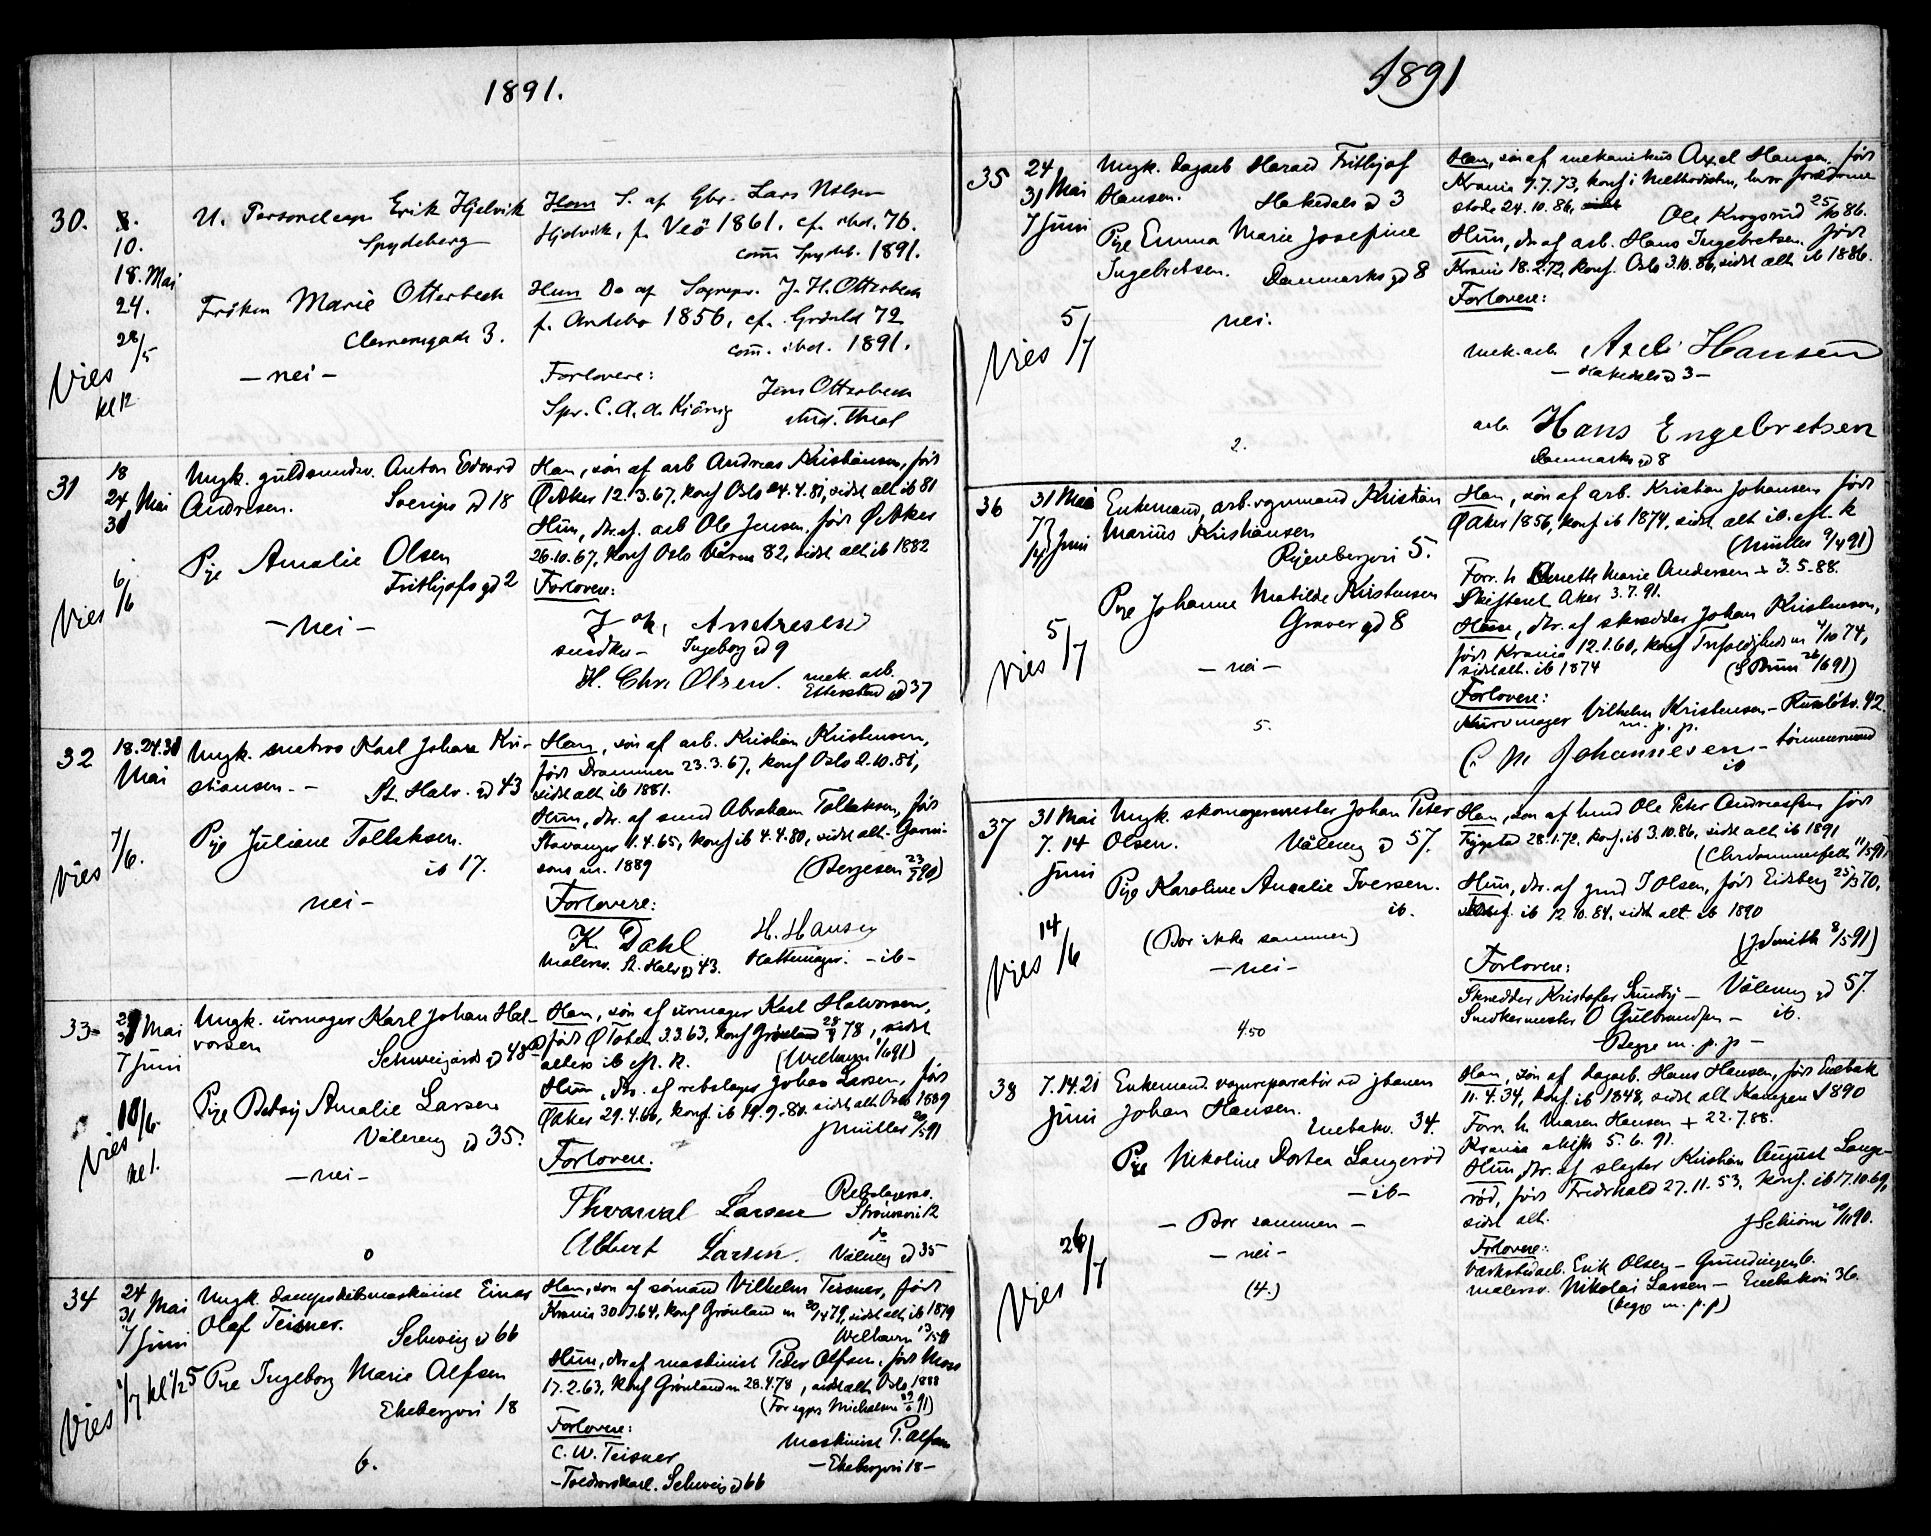 1891.
30.
8.
10.
18. Mai
24.
28/5
Vies
kl 12
U. Personelcapn Erik Hjelvik
Spydeberg
Fröken Marie Otterbech
Clemensgade 3.
— nei —
Ham S. af Gbr. Lars Nilsen
Hjelvik, f. Veö 1861. cf. ibd. 76.
com Spydeb. 1891.
Hun Da af Sognepr. J. H. Otterbech
f. Andebo 1856, cf. Grönld 72
com. ibd. 1891.
Forlovere:
Spr. C. A. de Jens Otterbech
stud. theol
31
18
24 Mai
31
6/6
Vies
Ungk. guldsmedsv. Anton Edvard
Andresen. Sverigs gd 18
Pige Amalie Olsen
Frithjofs gd 2
— nei —
Han, sön af arb Andreas Kristiansen, född
Ø Aker 12.3.67, konf Oslo 24.4.81, sidst alt. ib 81
Hun, dtr. af arb Ole Jensen, född Ø Aker
26.10.67, konf Oslo Våren 82, sidst alt. ib 1882
Forlovere:
Joh. Andresen
snedker — Ingeborg gd 9
H. Chr. Olsen. mek. arb.
Etterstad gd 37
32
18.24.31
Mai
7/6.
Vies
Ungk. matros Karl Johan Kri-
stiansen. — St. Halv. gd 43
Pige Juliane Tollaksen.
ib 17.
nei —
Han, sön af arb. Kristian Kristensen,
född Drammen 23.3.67, konf Oslo 2.10.81,
sidst alt ib 1881.
Hun, dtr. af smed Abraham Tollaksen, född
Stavanger 1.4.65, konf ib 4.4.80, sidst alt. Garni-
sons m. 1889 (Bergesen 23/5 90)
Forlovere:
K. Dahl H. Hansen
Malersv. St. Halv gd 43. Hattemager. — ib —
33
31 Mai
7 Juni
10/6
Vies
kl 1.
Ungk. urmager Karl Johan Hal-
vorsen Schweigaards gd 48
Pige Betsy Amalie Larsen
Vålereng gd 35.
— nei —
0
Han, sön af urmager Karl Halvorsen,
född Ø Toten 3.3.63, konf Grönland 78, sidst
alters ib eft. k. (Welhaven 1/6 91)
Hun, dtr. af rebslager Johan Larsen, född
Ø Aker 29.4.66, konf. ib 19.9.80. sidst alt. Oslo 1889
J Müller 91
Forlovere.
Thorval Larsen Rebslagersv.
Strömsvei 12
Albert Larsen. do
Vålereng gd 35
34
24
31 Mai
7 Juni
1/7 kl 1/2 5
Vies
Ungk. dampskibsmaskinist Einar
Olaf Teisner.
Schweig gd 66
Pige Ingeborg Marie Alfsen
Ekebergvei 18
6.
Han, sön af sömand Vilhelm Teisner, född
Krania 30.7.64, konf Grönland m 20/4 79, sidst alt. ib 1879
Welhaven 13/5 91
Hun, dtr. af maskinist Peter Alfsen, född Moss
17.2.63, konf Grönland m 28.4.78, sidst alt. Oslo 1888
(For egpr Michelsen 91)
Forlovere:
C. W. Teisner Maskinist P. Alfsen
— Toldvorskarl. Schweig gd 66 — Ekebergvei 18 —
1891
35
24
31 Mai
7 Juni
5/7
Vies
Ungk. Dagarb Harald Frithjof
Hansen. Hakedals gd 3
Pige Emma Marie Josefine
Ingebretsen. Danmarks gd 8
nei.
2.
Han, sön af mekanikus Axel Hansen, född
Krania 7.7.73, konf i Methodistm, hvor forældrene
stode 24.10.86, Ole Krogsrud 25/10 86.
Hun, dtr af arb. Hans Ingebretsen. född
Krania 18.2.72, konf. Oslo 3.10.86, sidst alt. ib 1886.
Forlovere:
mek. arb. Axel Hansen
— Hakedals gd 3 —
arb Hans Engebretsen
Danmarks gd 8
36
31 Mai
7
14 Juni
5/7
Vies
Enkemand, arb. vognmand Kristian
Marius Kristiansen
Ryenbergvei 5.
Pige Johanne Matilde Kristensen
Graver gd 8
— nei —
5.
Han, sön af arb. Kristian Johansen född
Ø Aker 1856, konf ib 1874, sidst alt ib. eft. k
(Müller 9/4 91)
Forr. h Anette Marie Andersen + 3.5.88.
Skifteret Aker 3.7.91.
Hun, dtr. af skrædder Johan Kristensen,
född Krania 12.1.60, konf Trefoldigheds m 4/10 74,
sidst alt. ib 1874 (S Bruun 26/6 91)
Forlovere:
Kurvmager Vilhelm Kristensen — Ruselökv. 42
m. p. p.
C. M. Johannesen — tömmermand
ib
37
31 Mai
7. 14
Juni
14/6
Vies
Ungk. skomagermester Johan Peter
Olsen. Vålereng gd 57.
Pige Karoline Amalie Iversen.
ib.
(Bor ikke sammen)
— nei —
4.50
Han, sön af hmd Ole Peter Andreassen född
Trygstad 28.1.72, konf. ib 3.10.86, sidst alt. ib 1891
(Chrdommerfeldt 11/5 91)
Hun, dtr. af gmd I Olsen, född Eidsberg 25/3 70,
konf. ib 12.10.84, sidst alt. ib 1890
(J Smith 8/5 91)
Forlovere:
Skrædder Kristofer Sundby — Vålereng gd 57.
Snedkermester O Gulbrandsen — ib.
— Begge m. p. p —
38
7.14.21
Juni
26/7
Vies
Enkemand. vognreparatör ved jbanen
Johan Hansen.
Enebakv. 34.
Pige Nikoline Dortea Langeröd
— ib —
— Bor sammen —
— nei —
(4.)
Han, sön af dagarb. Hans Hansen, född Enebak
11.4.34, konf ib 1848, sidst alt Kampen 1890
Forr. h. Maren Hansen + 22.7.88.
Krania skifte 5.6.91.
Hun, dtr. af slagter Kristian August Lange-
röd, född Fredrhald 27.11.53, konf. ib 17.10.69,
sidst alt. J Schiörn 20/11 90.
Forlovere:
Værkstedarb. Erik Olsen — Grundingen 6.
malersv. Nikolai Larsen — Enebakvei 36.
(begge m. p. p)